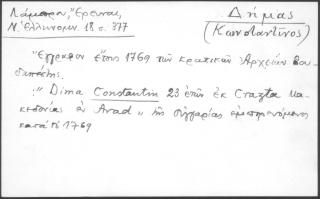 Λάμπρου, "Έρευναι,
Ν. Ελληνομν. 18 σ. 377
Δήμας
(Κωνσταντίνος)
Έγγραφον έτους 1769 των κρατικών Αρχείων Βου-
δαπέστης.
:" Dima Constantin 23 ετών εκ Crazta Μα-
κεδονίας εν Arad" της Ουγγαρίας εμπορευόμενος
κατά το 1769